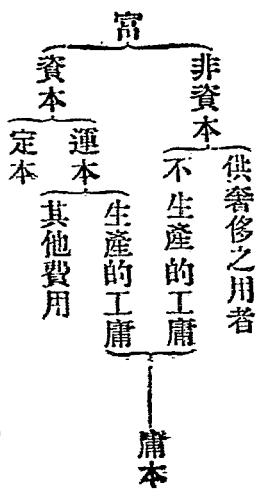 富
非資本
資本
供奢侈之用者
不生產的工庸
運本
定本
生產的工庸
其他費用
庸本